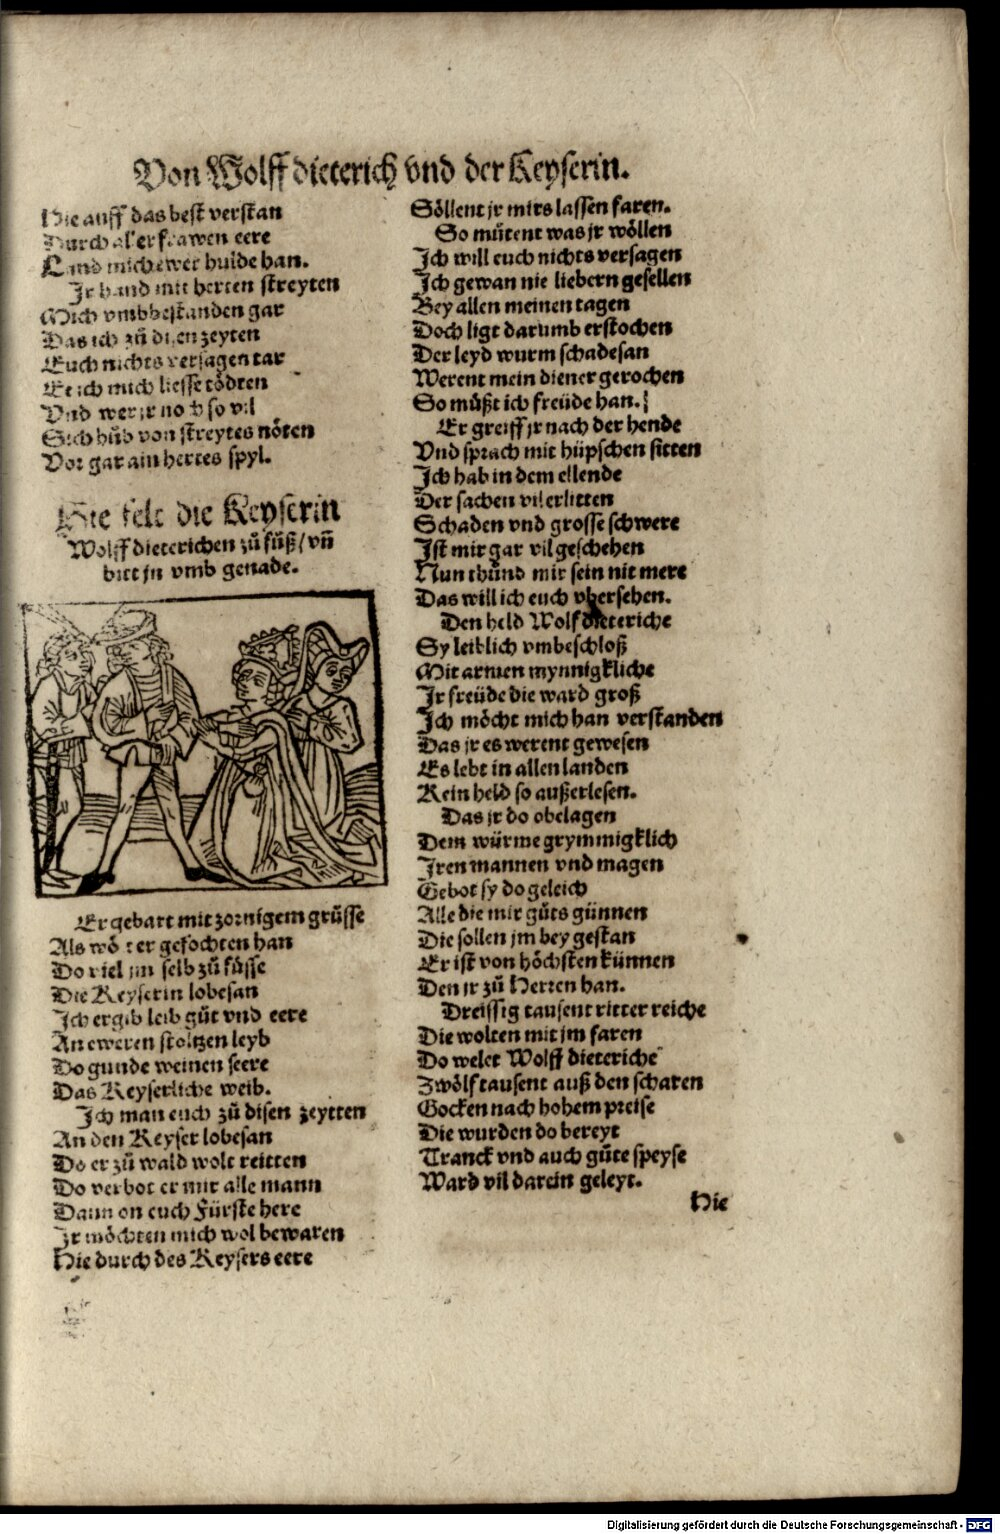 Von Wolff dieterich vnd der Keyserin.
Hie auff das best verstan
Durch aller frawen eere
Land mich ewer hulde han.
Ir hand mit herten streyten
Mich vmbbestanden gar
Das ich zů disen zeyten
Euch nichts versagen tar
Ee ich mich liesse tödten
Vnd wer ir noch so vil
Sich hůb von streytes nöten
Vor gar ain hertes spyl.
Hie felt die Keyserin
Wolff dieterichen zů fůß / vñ
bitt jn vmb genade.
Er gebart mit zornigem grüsse
Als wö er gefochten han
Do viel jm selb zů füsse
Die Keyserin lobesan
Ich ergib leib gůt vnd eere
An eweren stoltzen leyb
Do gunde weinen seere
Das Keyserliche weib.
Ich man euch zů disen zeytten
An den Keyser lobesan
Do er zů wald wolt reitten
Do verbot er mir alle mann
Dann on euch Fürste here
Ir möchten mich wol bewaren
Hie durch des Keysers eere
Söllent jr mirs lassen faren.
So mütent was jr wöllen
Ich will euch nichts versagen
Ich gewan nie liebern gesellen
Bey allen meinen tagen
Doch ligt darumb erstochen
Der leyd wurm schadesan
Werent mein diener gerochen
So müßt ich freüde han.
Er greiff jr nach der hende
Vnd sprach mit hüpschen sitten
Ich hab in dem ellende
Der sachen vil erlitten
Schaden vnd grosse schwere
Ist mir gar vil geschehen
Nun thůnd mir sein nit mere
Das will ich euch vbersehen.
Den held Wolf dieteriche
Sy leiblich vmbeschloß
Mit armen mynnigkliche
Ir freüde die ward groß
Ich möcht mich han verstanden
Das jr es werent gewesen
Es lebt in allen landen
Kein held so außerlesen.
Das jr do obelagen
Dem würme grymmigklich
Iren mannen vnd magen
Gebot sy do geleich
Alle die mir gůts günnen
Die sollen jm bey gestan
Er ist von höchsten künnen
Den jr zů Herren han.
Dreissig tausent ritter reiche
Die wolten mit jm faren
Do welet Wolff dieteriche
Zwölf tausent auß den scharen
Gocken nach hohem preise
Die wurden do bereyt
Tranck vnd auch gůte speyse
Ward vil darein geleyt.
Hie
Digitalisierung gefördert durch die Deutsche Forschungsgemeinschaft - DFG